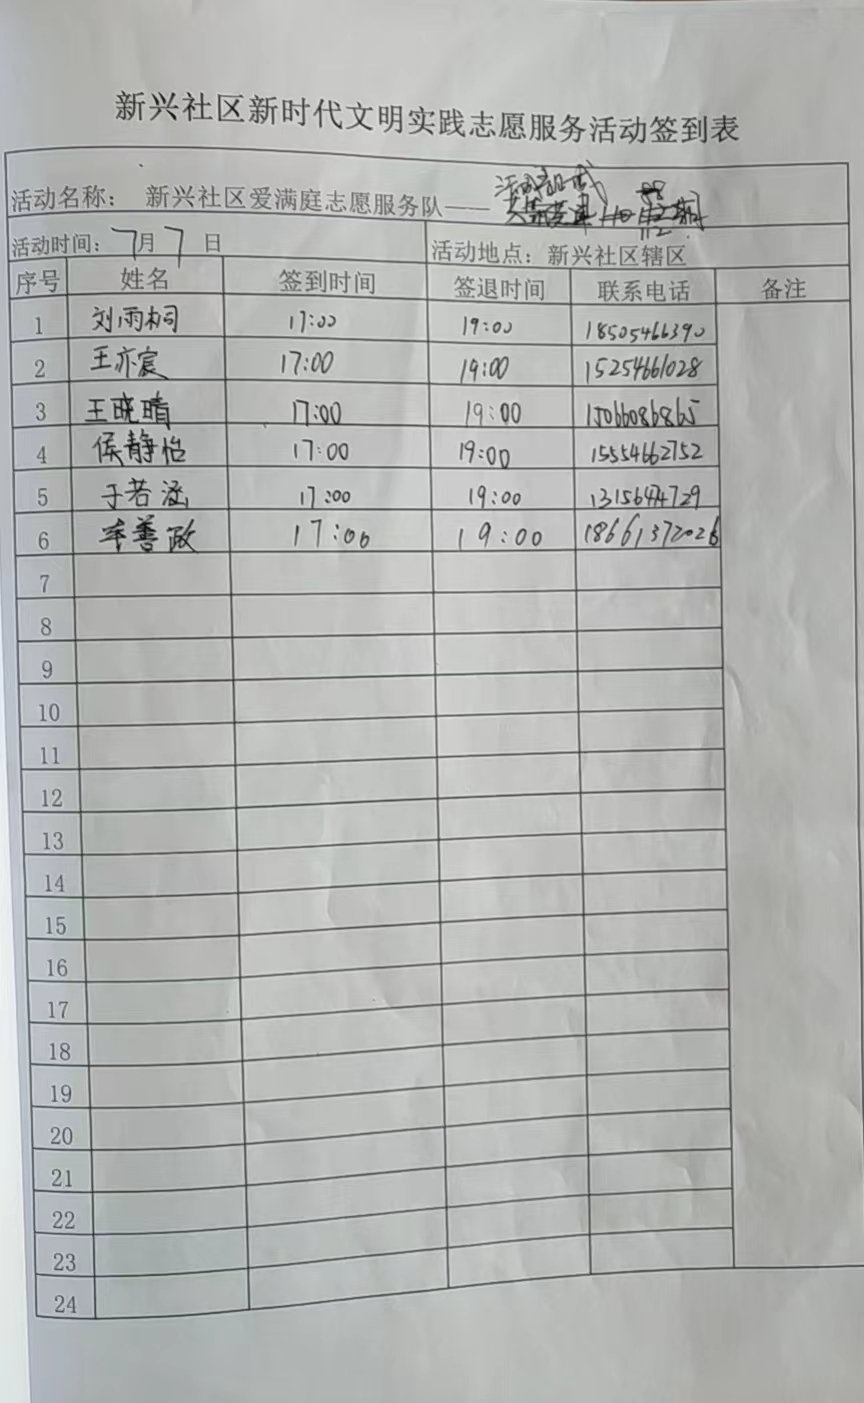 新兴社区新时代文明实践志愿服务活动签到表
活动名称： 新兴社区爱满庭志愿服务队——
活动时间：7月7日 活动地点：新兴社区辖区
序号 姓名 签到时间 签退时间 联系电话 备注
1 刘雨桐 17:00 19:00 18505466390
2 王亦宸 17:00 19:00 15254661028
3 王晓晴 17:00 19:00 15066086865
4 侯静怡 17:00 19:00 15554662752
5 于若涵 17:00 19:00
6 牟善政 17:00 19:00 18661372026
7
8
9
10
11
12
13
14
15
16
17
18
19
20
21
22
23
24